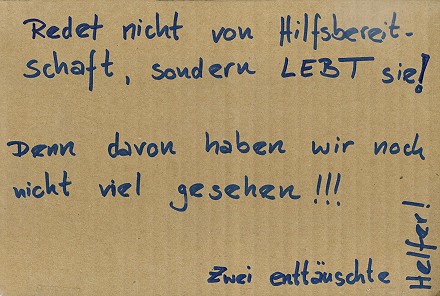 Redet nicht von Hilfsbereit-
schaft, sondern LEBT sie!
Denn davon haben wir noch
nicht viel gesehen!!!
Zwei enttäuschte
Helfer!